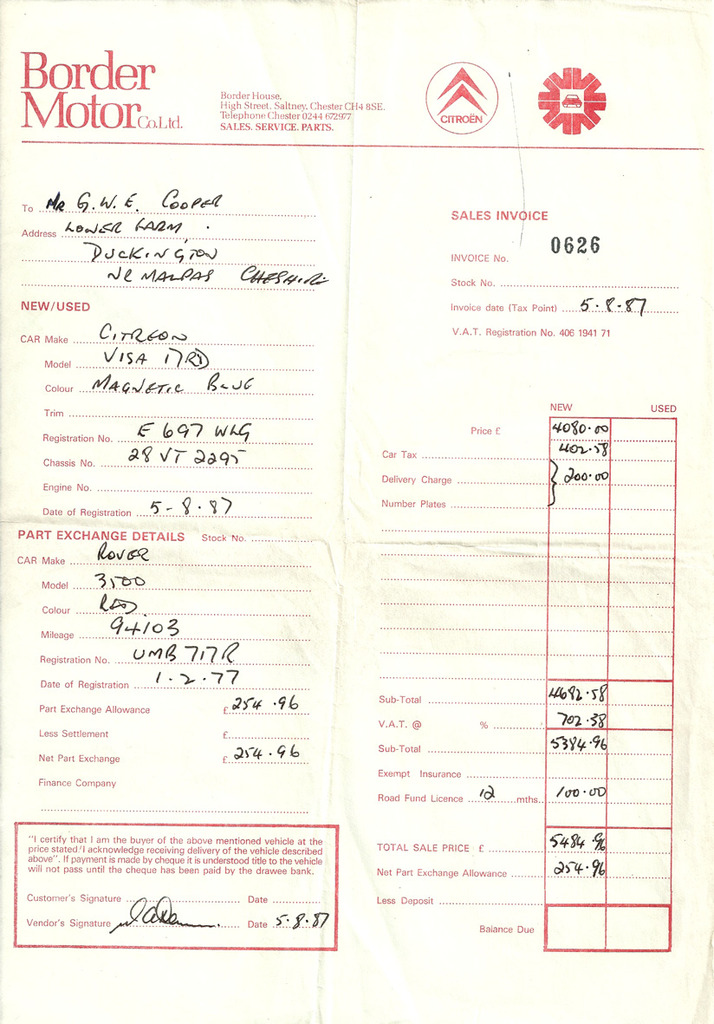 Border
Motor Co.Ltd.
Border House,
High Street, Saltney, Chester CH4 8SE.
Telephone Chester 0244 672977
SALES. SERVICE. PARTS.
CITROËN
To MR G.W.E. COOPER
Address LOWER FARM
DUCKINGTON
NR MALPAS CHESHIRE
SALES INVOICE
INVOICE No. 0626
Stock No.
Invoice date (Tax Point) 5-8-87
V.A.T. Registration No. 406 1941 71
NEW/USED
CAR Make CITREON
Model VISA 17RD
Colour MAGNETIC BLUE
Trim
Registration No. E 697 WLG
Chassis No. 28 VT 2295
Engine No.
Date of Registration 5-8-87
PART EXCHANGE DETAILS Stock No.
CAR Make ROVER
Model 3500
Colour RED
Mileage 94103
Registration No. UMB 717R
Date of Registration 1-2-77
Part Exchange Allowance £ 254.96
Less Settlement £
Net Part Exchange £ 254.96
Finance Company
NEW USED
Price £ 4080.00
Car Tax 402.58
Delivery Charge 200.00
Number Plates
Sub-Total 4682.58
V.A.T. @ % 702.38
Sub-Total 5384.96
Exempt Insurance
Road Fund Licence 12 mths. 100.00
TOTAL SALE PRICE £ 5484.96
Net Part Exchange Allowance 254.96
Less Deposit
Balance Due
"I certify that I am the buyer of the above mentioned vehicle at the
price stated/I acknowledge receiving delivery of the vehicle described
above". If payment is made by cheque it is understood title to the vehicle
will not pass until the cheque has been paid by the drawee bank.
Customer's Signature Date
Vendor's Signature Date 5-8-87